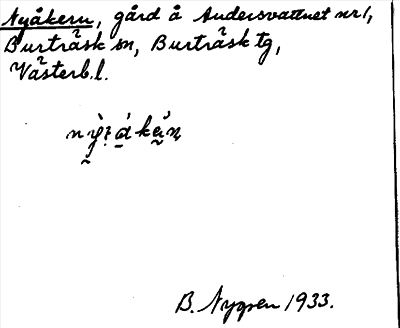 Nyåkern, gård å Andersvattnet nr 1,
Burträsk sn, Burträsk tg,
Västerb. l.
B. Nygren 1933.